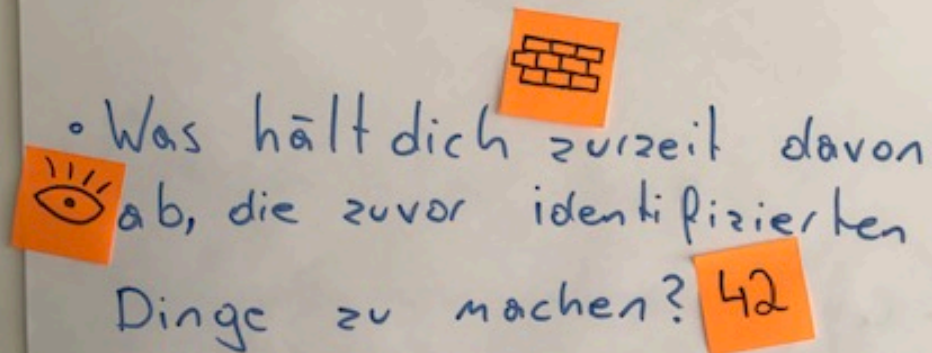 • Was hält dich zurzeit davon
ab, die zuvor identifizierten
Dinge zu machen? 42